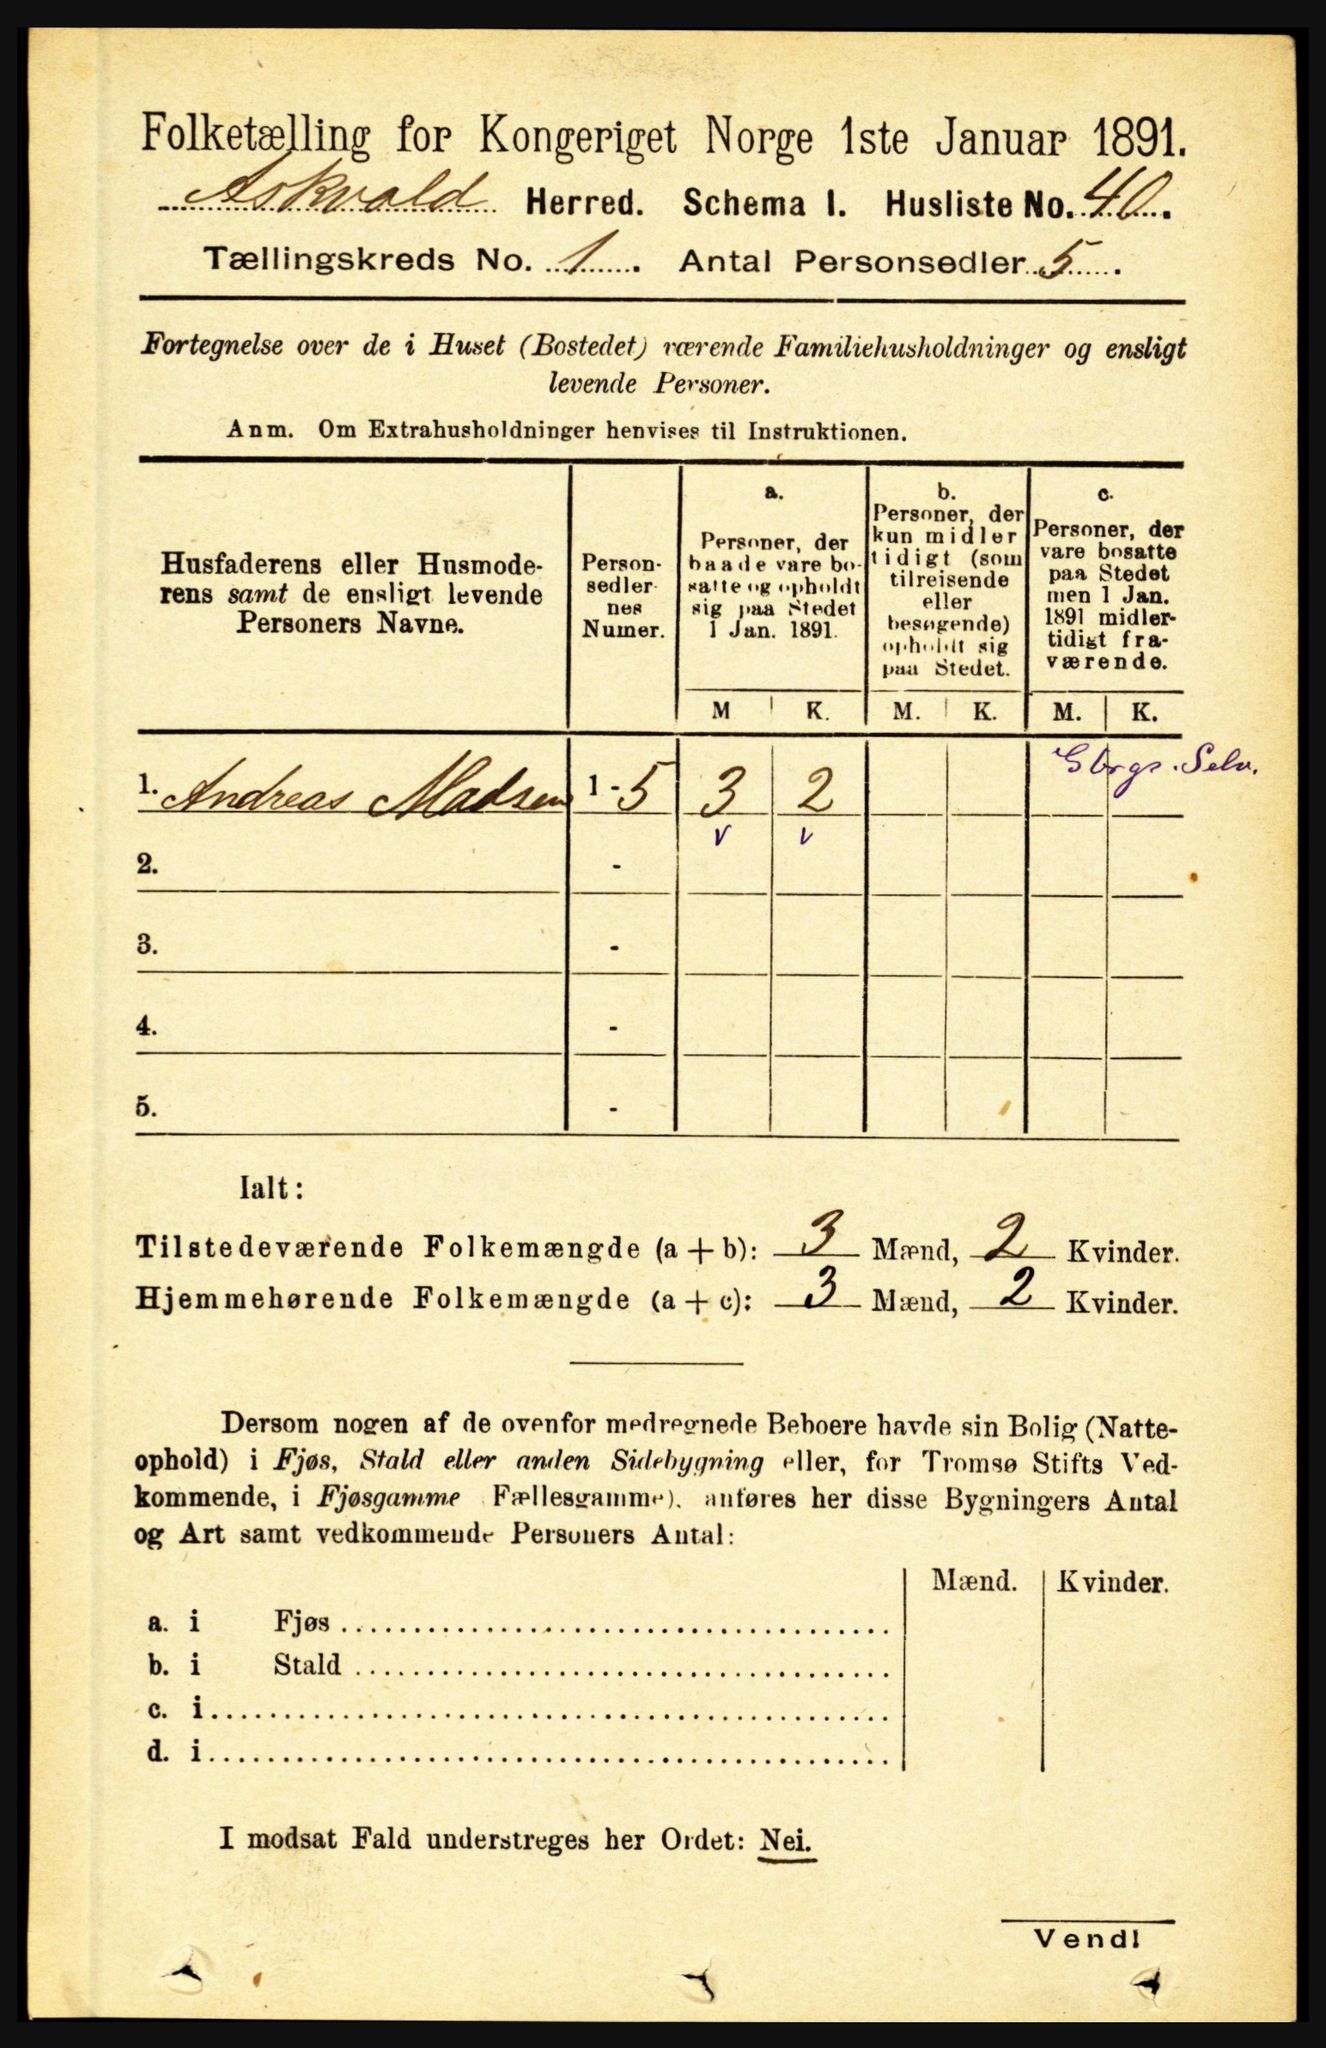 Folketælling for Kongeriget Norge 1ste Januar 1891.
Askvold Herred. Schema I. Husliste No. 40.
Tællingskreds No. 1. Antal Personsedler 5.
Fortegnelse over de i Huset (Bostedet) værende Familiehusholdninger og ensligt
levende Personer.
Anm. Om Extrahusholdninger henvises til Instruktionen.
Husfaderens eller Husmode-
rens samt de ensligt levende
Personers Navne.
Person-
sedler-
nes
Numer.
a.
Personer, der
baade vare bo-
satte og opholdt
sig paa Stedet
1 Jan. 1891.
M K.
b.
Personer, der
kun midler
tidigt (som
tilreisende
eller
besøgende)
opholdt sig
paa Stedet.
M. K.
c.
Personer, der
vare bosatte
paa Stedet
men 1 Jan.
1891 midler-
tidigt fra-
værende.
M. K.
Gbrgs. Selv.
1. Andreas Madsen 1 - 5 3 2
v v
2. -
3. -
4. -
5. -
Ialt:
Tilstedeværende Folkemængde (a + b): 3 Mænd, 2 Kvinder.
Hjemmehørende Folkemængde (a + c): 3 Mænd, 2 Kvinder.
Dersom nogen af de ovenfor medregnede Beboere havde sin Bolig (Natte-
ophold) i Fjøs, Stald eller anden Sidebygning eller, for Tromsø Stifts Ved-
kommende, i Fjøsgamme Fællesgamme), anføres her disse Bygningers Antal
og Art samt vedkommende Personers Antal:
Mænd. Kvinder.
a. i Fjøs
b. i Stald
c. i
d. i
I modsat Fald understreges her Ordet: Nei.
Vend!